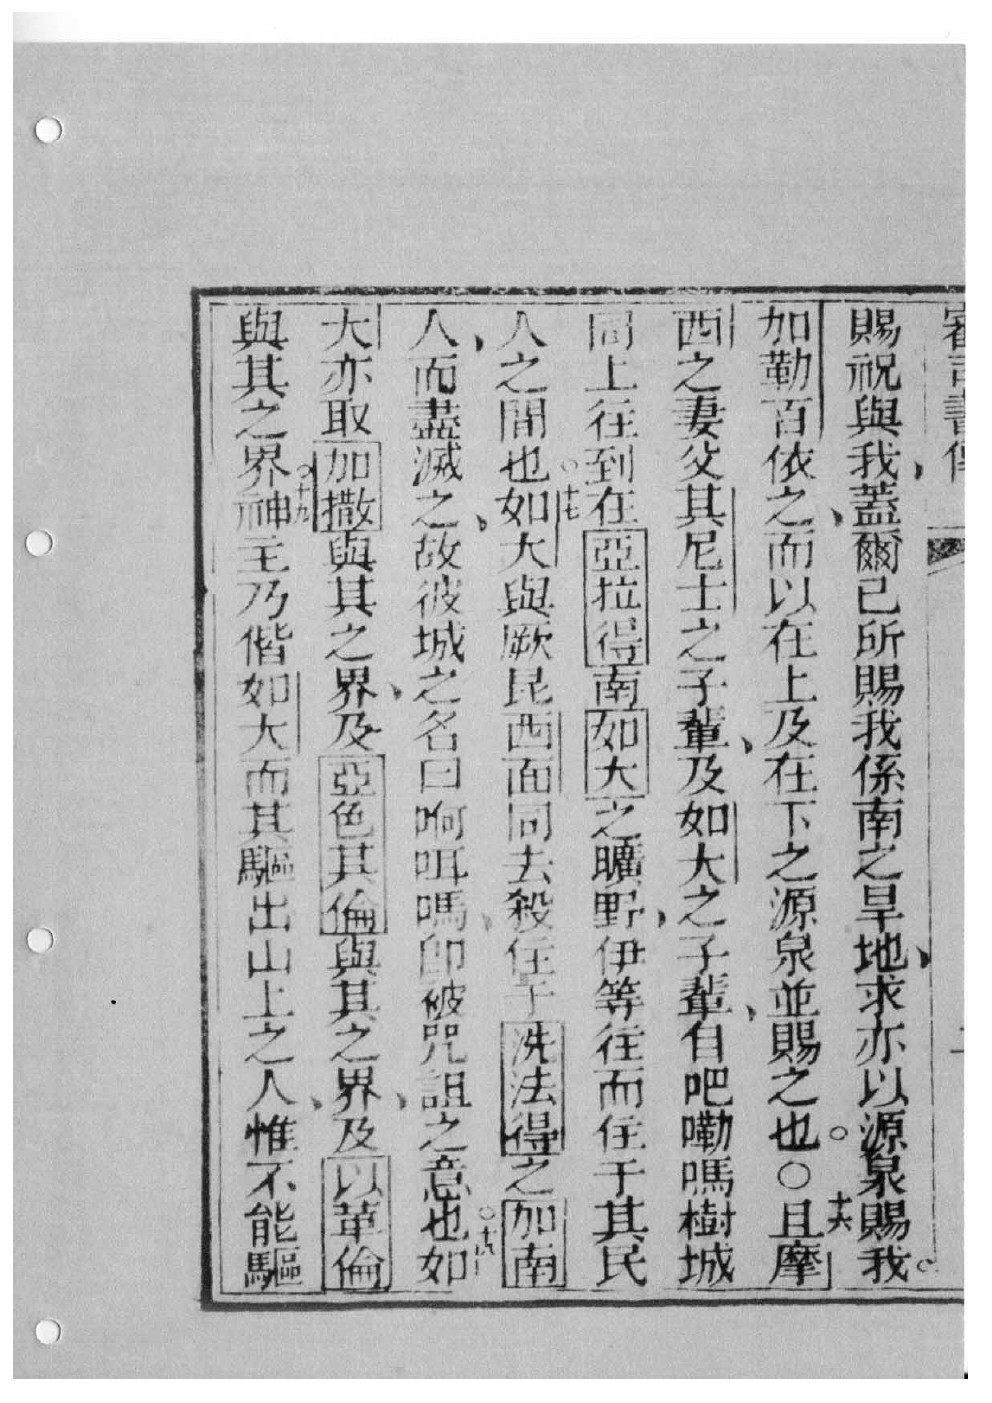 審司書傳
賜祝與我、蓋爾已所賜我係南之旱地、求亦以源泉賜我。
加勒百依之、而以在上及在下之源泉並賜之也。○十六且摩
西之妻父其尼士之子輩、及如大之子輩、自吧嘞嗎樹城
同上往到在亞拉得南如大之曠野、伊等往而住于其民
人之間也○十七如大與厥昆西面同去殺住于洗法得之加南
人、而盡滅之、故彼城之名曰啊咡嗎、卽被咒詛之意也○十八如
大亦取加撒與其之界、及亞色其倫與其之界、及以革倫
與其之界○十九神主乃偕如大而其驅出山上之人、惟不能驅